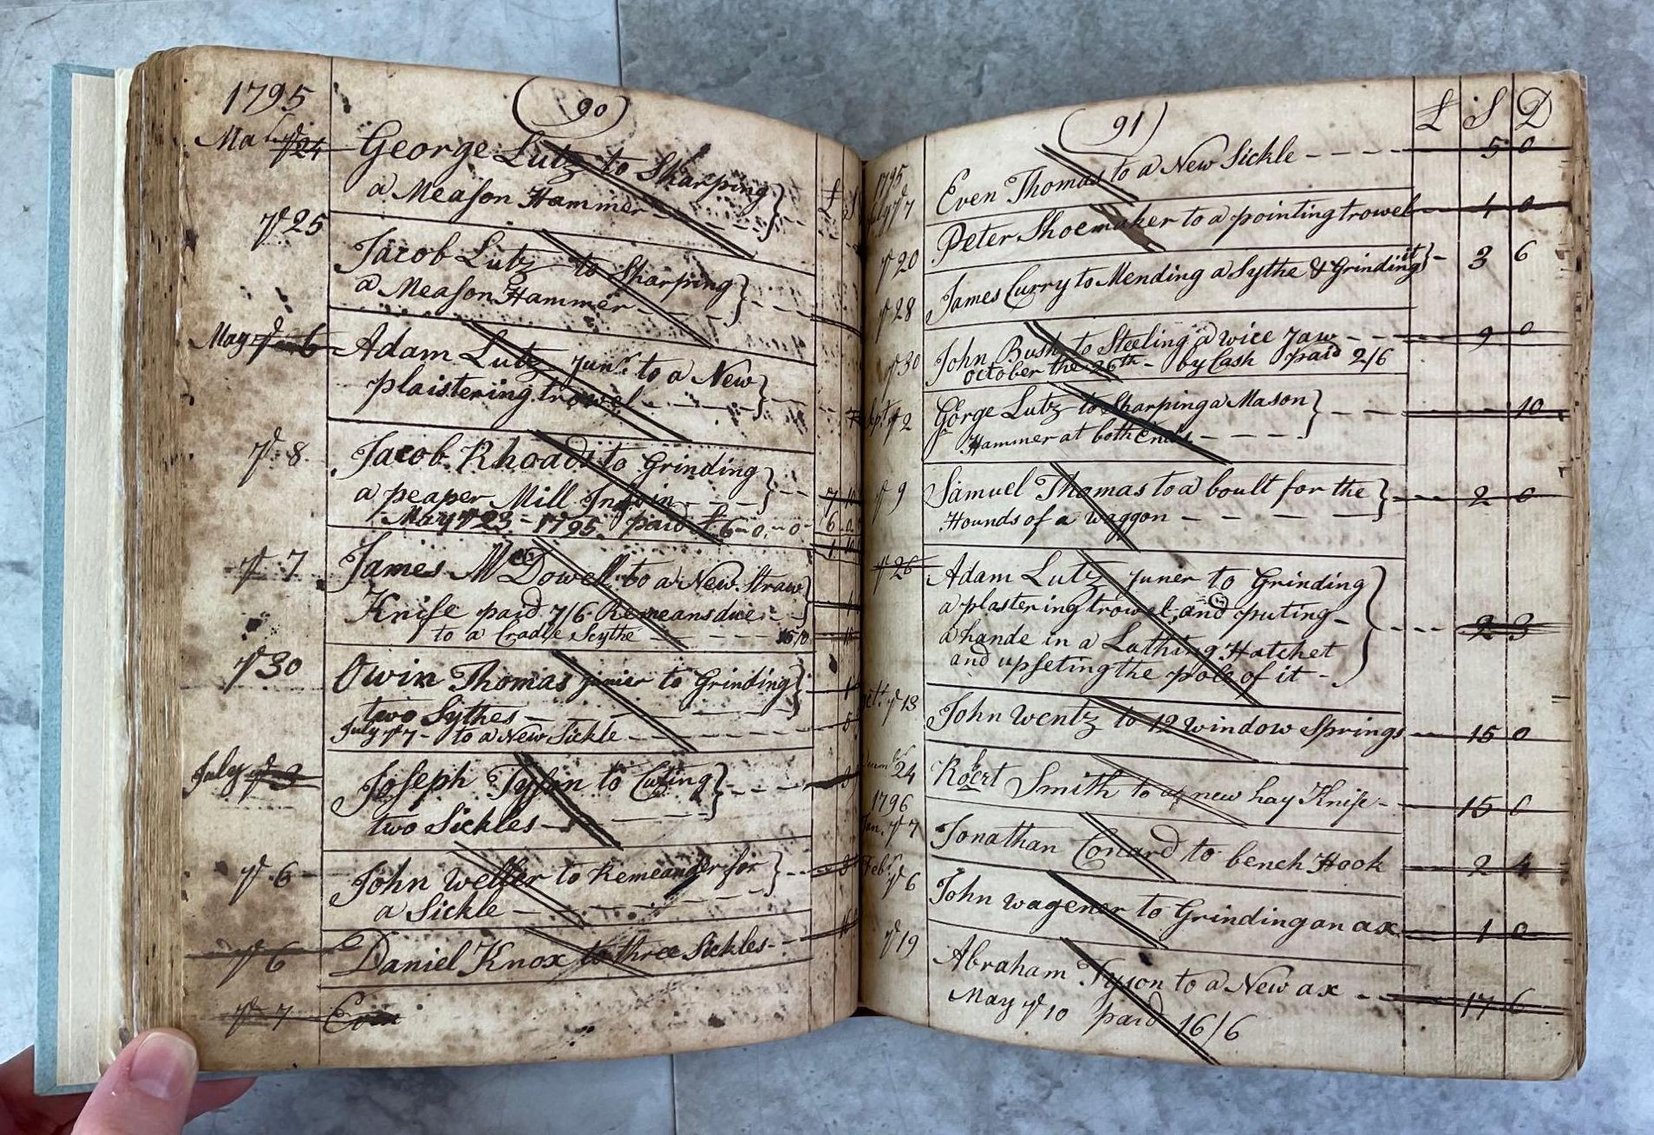 1795
(90)
24 George Lutz to Sharping
a Meason Hammer
ye 25
Jacob Lutz to Sharping
a Meason Hammer
May ye 6 Adam Lutz Junr to a New
plaistering trowel
ye 8
Jacob Rhoads to Grinding
a peaper Mill
May ye 23 - 1795 paid £ 6-0-0
ye 7 James McDowell to a New Straw
Knife paid 7/6 Remeans due
to a Cradle Scythe
ye 30 Owin Thomas junier to Grinding
two Sythes
July ye 7 - to a New Sickle
July ye 3
Joseph Tyson to Cuting
two Sickles
ye 6
John Welker to Remeander for
a Sickle
ye 6 Daniel Knox to three Sickles
ye 7
(91)
£ S D
1795
ye 7 Even Thomas to a New Sickle 5 0
Peter Shoemaker to a pointing trowel 1 0
ye 20
James Curry to Mending a Sythe & Grinding it 3 6
ye 28
ye 30 John Bush to Steeling a vice Jaw 9 0
october the 26th - by Cash paid 2/6
ye 2 Gorge Lutz to Sharping a Mason 10
Hammer at both Ends
ye 9 Samuel Thomas to a boult for the 2 0
Hounds of a waggon
ye 26 Adam Lutz Juner to Grinding
a plastering trowel and puting 2 3
a hande in a Lathing Hatchet
and upseting the pole of it
ye 13 John Wentz to 12 window Springs 15 0
24 Robert Smith to a new hay Knife 15 0
1796
Jan. ye 7 Jonathan Conard to bench Hook 2 4
Feb. ye 6 John wagener to Grinding an ax 1 0
ye 19
Abraham Tyson to a New ax 17 6
May ye 10 paid 16/6